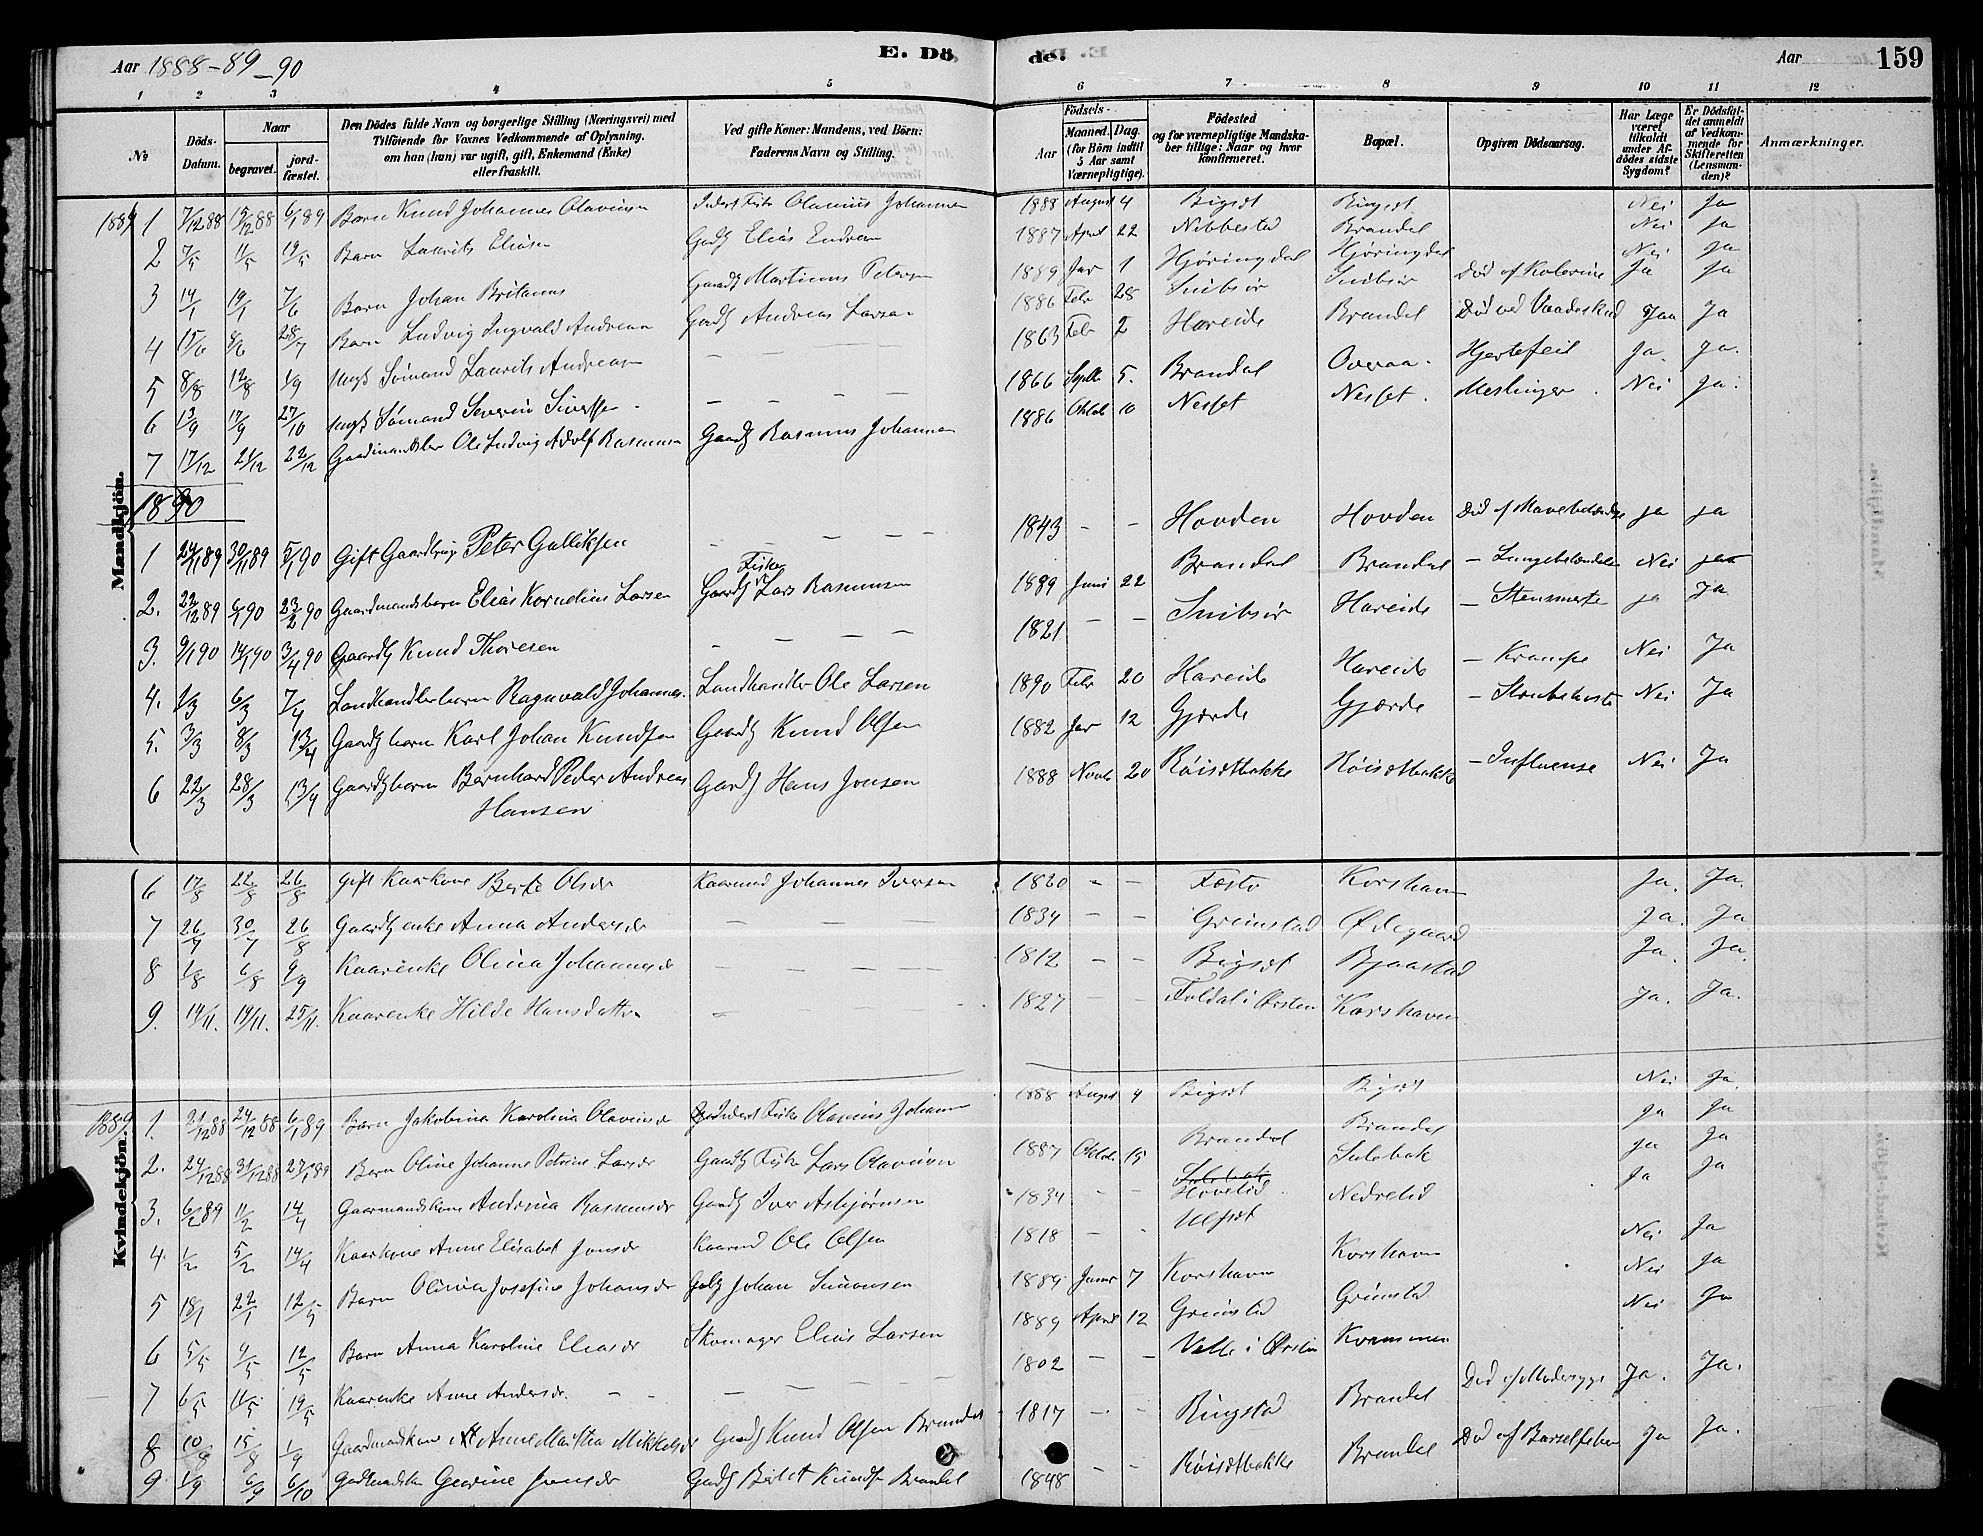 Aar 1888-89-90 E. Dö de. Aar 159
1 2 3 4 5 6 7 8 9 10 11 12
No Döds-Datum. Naar begravet. jordfæstet. Den Dödes fulde Navn og borgerlige Stilling (Næringsvei) med Tilföiende for Voxnes Vedkommende af Oplysning, om han (hun) var ugift, gift, Enkemand (Enke) eller fraskilt. Ved gifte Koner: Mandens, ved Börn: Faderens Navn og Stilling. Aar Födsels- Maaned. Dag. (for Börn indtil 5 Aar samt Værnepligtige). Födested og for værnepligtige Mandskaber tillige: Naar og hvor konfirmeret. Bopæl. Opgiven Dödsaarsag. Har Læge været tilkaldt under Afdödes sidste Sygdom? Er Dödsfaldet anmeldt af Vedkommende for Skifteretten (Lensmanden)? Anmærkninger.
Mandkjön.
1889 1 7/12 88 15/12 88 6/1 89 Barn Knud Johannes Olavusen Inderst Fisker Olavius Johannesen 1888 August 4 Bigset Bigset Nei Ja
2 7/5 11/5 19/5 Barn Laurits Eliasen Gaardm Elias Endresen 1887 April 22 Nibbestad Brandal Nei Ja
3 14/1 19/1 7/6 Barn Johan Britanus Gaardm Martinus Petersen 1889 Jan 1 Hjøringdal Hjøringdal Nei Ja
4 15/6 8/6 28/7 Barn Ludvig Ingvald Andreasen Gaardm Andreas Larsen 1886 Febr 28 Snibsør Snibsør Død af Kolerine Ja Ja
5 8/8 12/8 1/9 Ungk Sømand Laurits Andreasen — — — — 1863 Febr 2 Hareide Brandal Død ved Vaadeskud Jaa Ja
6 13/9 17/9 27/10 Ungk Sømand Severin Sivertsen — — — — 1866 Septb 5. Brandal Overaa. Hjertefeil Ja. Ja.
7 17/12 21/12 22/12 Gaardmandsbarn Ole Ludvig Adolf Rasmusen Gaardm Rasmus Johannesen 1886 Oktob 10 Nesset Nesset. Meslinger. Nei Ja.
1890
1 24/11 89 30/11 89 5/1 90 Gift Gaardbrug Peter Gulliksen — — — — 1843 - - Hovden Hovden Død af Mavebetændelse ja ja
2. 22/12 89 6/1 90 23/2 90 Gaardmandsbarn Elias Kornelius Larsen Gaardm Fisker Lars Rasmusen 1889 Juni 22 Brandal Brandal - Lungebetændelse Nei ja
3. 9/1 90 14/1 90 3/4 90 Gaardm Knud Thoresen — — — — 1821 - - Snibsør Hareide - Stensmerte ja Ja
4. 1/3 6/3 7/4 Landhandlerbarn Ragnvald Johannes. Landhandler Ole Larsen 1890 Febr 20 Hareide Hareide - Krampe Nei Ja
5. 3/3 8/3 13/4 Gaardm barn Karl Johan Knudsen Gaardm Knud Olsen 1882 Jan 12 Gjærde Gjærde - Strubehoste Nei Ja
6 22/3 28/3 13/4 Gaardm barn Bernhard Peder Andreas Hansen Gaardm Hans Jonsen 1888 Novb 20 Røisætbakke Røisætbakke - Influense Nei Ja
Kvindekjön.
6 17/8 22/8 26/8 Gift Kaarkone Berte Olsdr Kaarmand Johannes Iversen 1820 - - Festø Korshavn Ja. Ja.
7 26/7 30/7 26/8 Gaardm enke Anna Andersdr — — — 1834 - - Grimstad Ødegaard Ja. Ja
8 1/8 6/8 9/9 Kaarenke Olina Johannesdr — — — — 1812 - - Bigset Bjaastad Ja. Ja.
9. 14/11. 19/11. 25/11. Kaarenke Hilde Hansdatter — — — 1827 - - Foldal i Ørsten Korshavn Ja. Ja.
1889 1. 21/12 88 24/12 88 6/1 89 Barn Jakobina Karolina Olavusdr Inderst Fisker Olavius Johannesen 1888 August 4 Bigset Bigset Nei Ja.
2. 24/12 88 31/12 88 27/1 89 Barn Oline Johanne Petrine Larsdr Gaardm Fisker Lars Olavusen 1887 Oktob. 15 Brandal Brandal Ja Ja
3. 6/2 89 11/2 14/4 Gaarmandskone Andrina Rasmusdr Gaardm Iver Asbjørnsen 1834 - - Hovelid Sulebak ja Ja
4. 1/2 5/2 14/4 Kaarkone Anne Elisabet Jonsdr Kaarmd Ole Olsen 1818 - - Ulfset Nedrelid Ja Ja
5 18/1 22/1 12/5 Barn Olina Josefine Johansdr Gbr Johan Simonsen 1889 Januar 7 Korshavn Korshavn Nei Ja
6 5/5 9/5 12/5 Barn Anna Karoline Eliasdr Skomager Elias Larsen 1889 April 12 Grimstad Grimstad Nei Ja
7 6/5 11/5 19/5 Kaarenke Anne Andersdr. — — — — 1802 - - Velle i Ørsten Kvammen Nei Ja
8 10/8 15/8 1/9 Gaardmandskone Anne Martha Mikkelsdr Gaardm Knud Olsen Brandal 1817 - - Ringstad Brandal Død af Modersyge Ja. Ja.
9. 1/9 6/9 6/10 Gaardmandskone Gurine Jonsdr Gaardm Knuds Brandal 1848 - - Røisætbakke Brandal Død af Barselfeber Ja Ja.